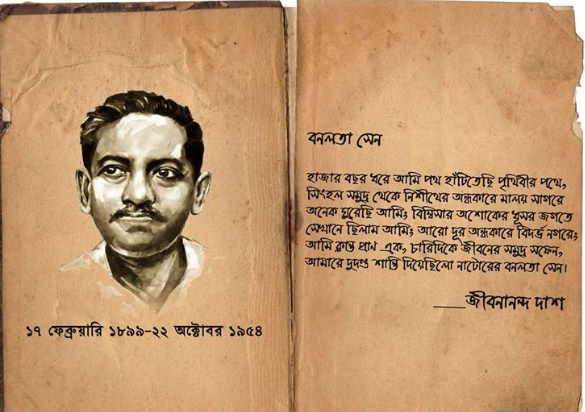 ১৭ ফেব্রুয়ারি ১৮৯৯-২২ অক্টোবর ১৯৫৪
বনলতা সেন
হাজার বছর ধরে আমি পথ হাঁটিতেছি পৃথিবীর পথে,
সিংহল সমুদ্র থেকে নিশীথের অন্ধকারে মালয় সাগরে
অনেক ঘুরেছি আমি; বিম্বিসার অশোকের ধূসর জগতে
সেখানে ছিলাম আমি; আরো দূর অন্ধকারে বিদর্ভ নগরে;
আমি ক্লান্ত প্রাণ এক, চারিদিকে জীবনের সমুদ্র সফেন,
আমারে দুদণ্ড শান্তি দিয়েছিলো নাটোরের বনলতা সেন।
___জীবনানন্দ দাশ